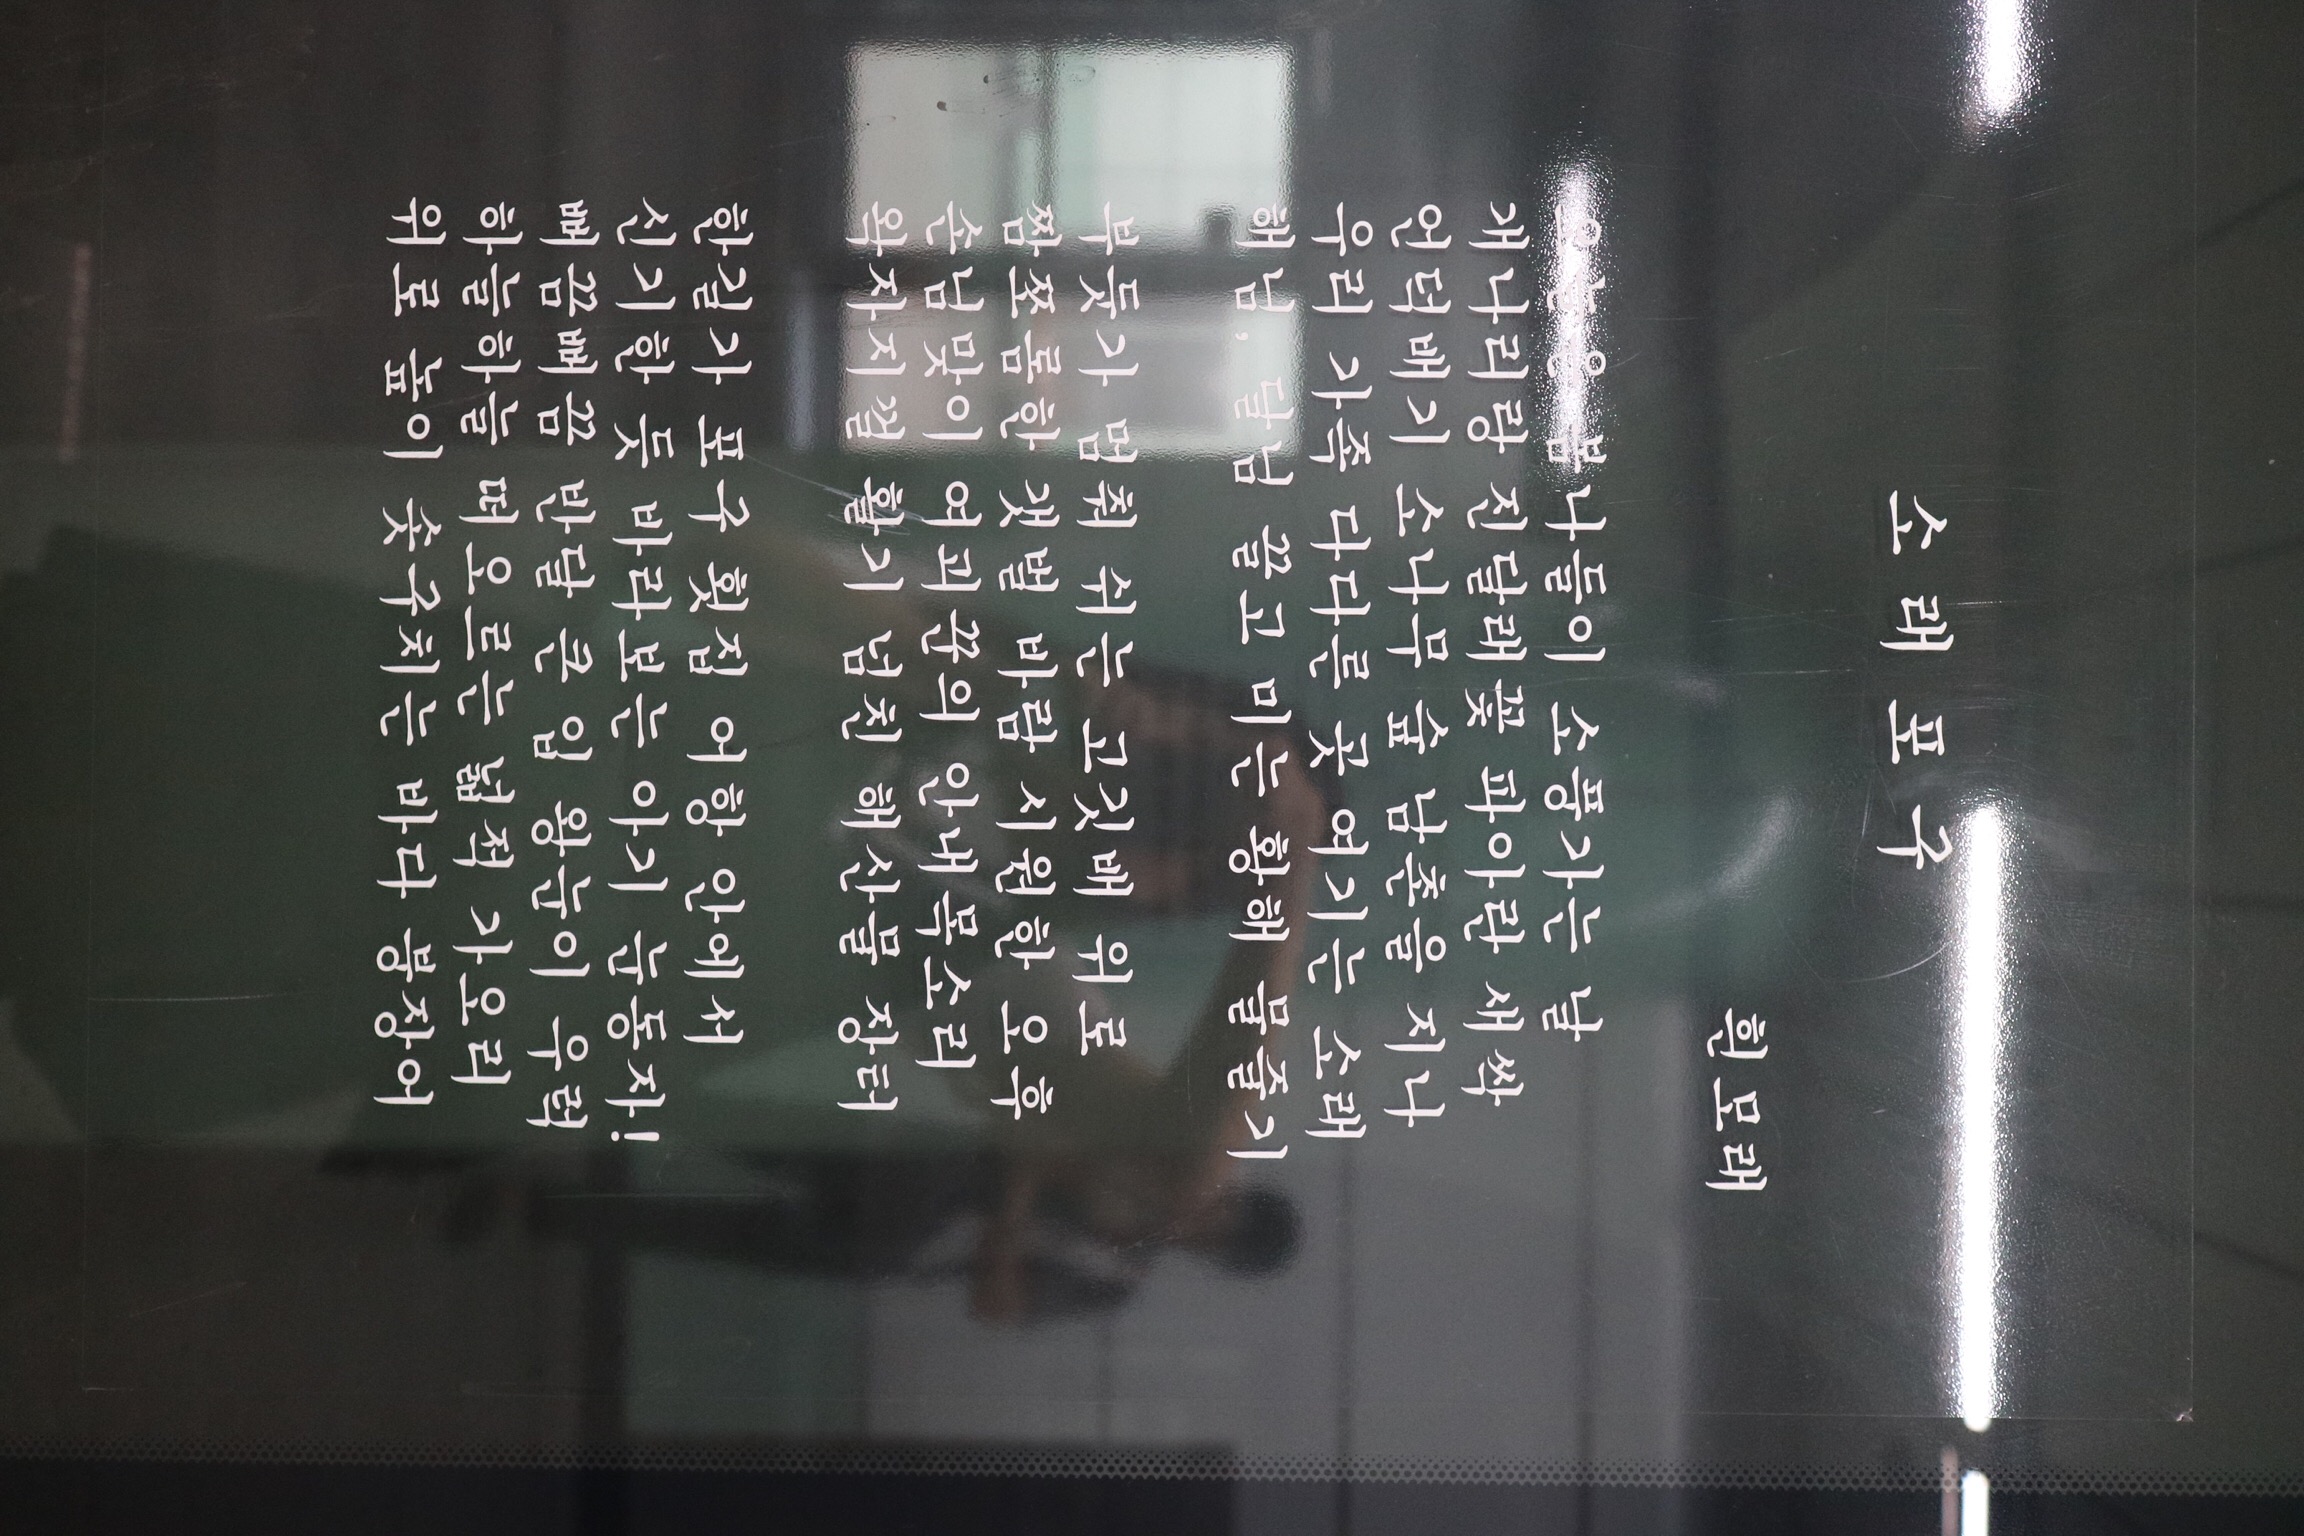 소 래 포 구
흰모래
나들이 소풍가는 날
개나리랑 진달래꽃 파아란 새싹
언덕배기 소나무 숲 남촌을 지나
우리 가족 다다른 곳 여기는 소래
해님, 달님 끌고 미는 황해 물줄기
부둣가 멈춰 쉬는 고깃배 위로
짭쪼롬한 갯벌 바람 시원한 오후
손님맞이 여괴꾼의 안내 목소리
왁자지껄 활기 넘친 해산물 장터
한길가 포구 횟집 어항 안에서
신기한 듯 바라보는 아기 눈동자!
뻐끔뻐끔 반달 큰 입 왕눈이 우럭
하늘하늘 떠오르는 넓적 가오리
위로 높이 솟구치는 바다 붕장어